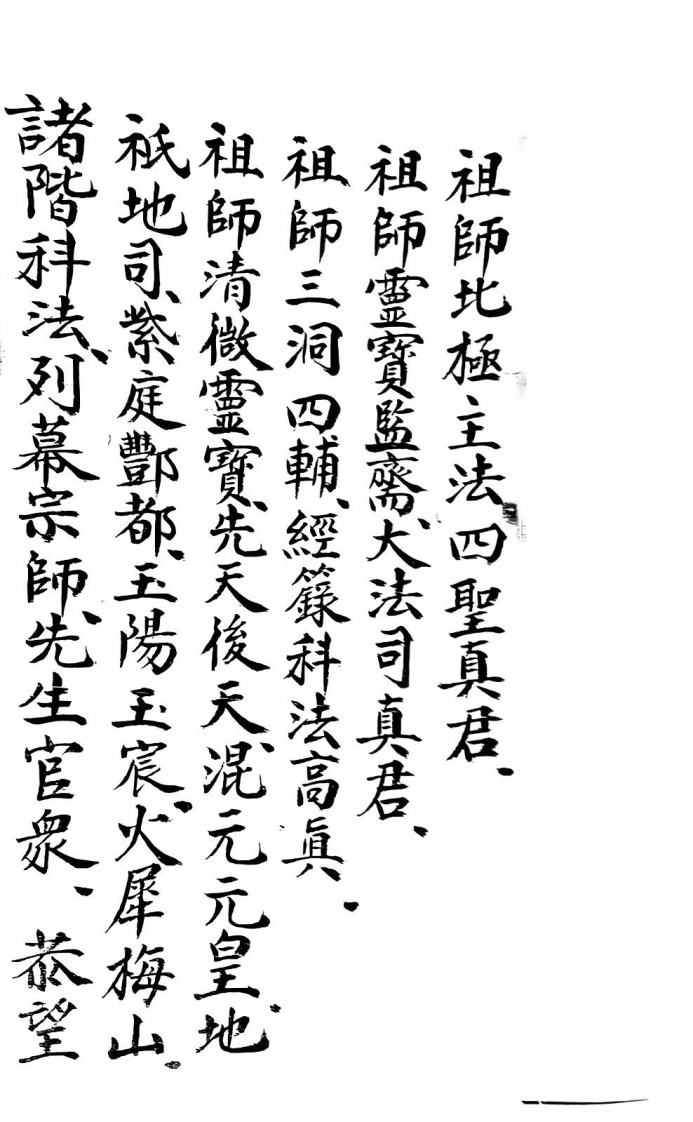 祖師北極主法四聖真君、
祖師靈寶監齋、大法司真君、
祖師三洞四輔、經籙科法高真、
祖師清微靈寶、先天後天、混元元皇、地
祇地司、紫庭酆都、玉陽玉宸、火犀梅山、
諸階科法、列幕宗師、先生官衆、恭望